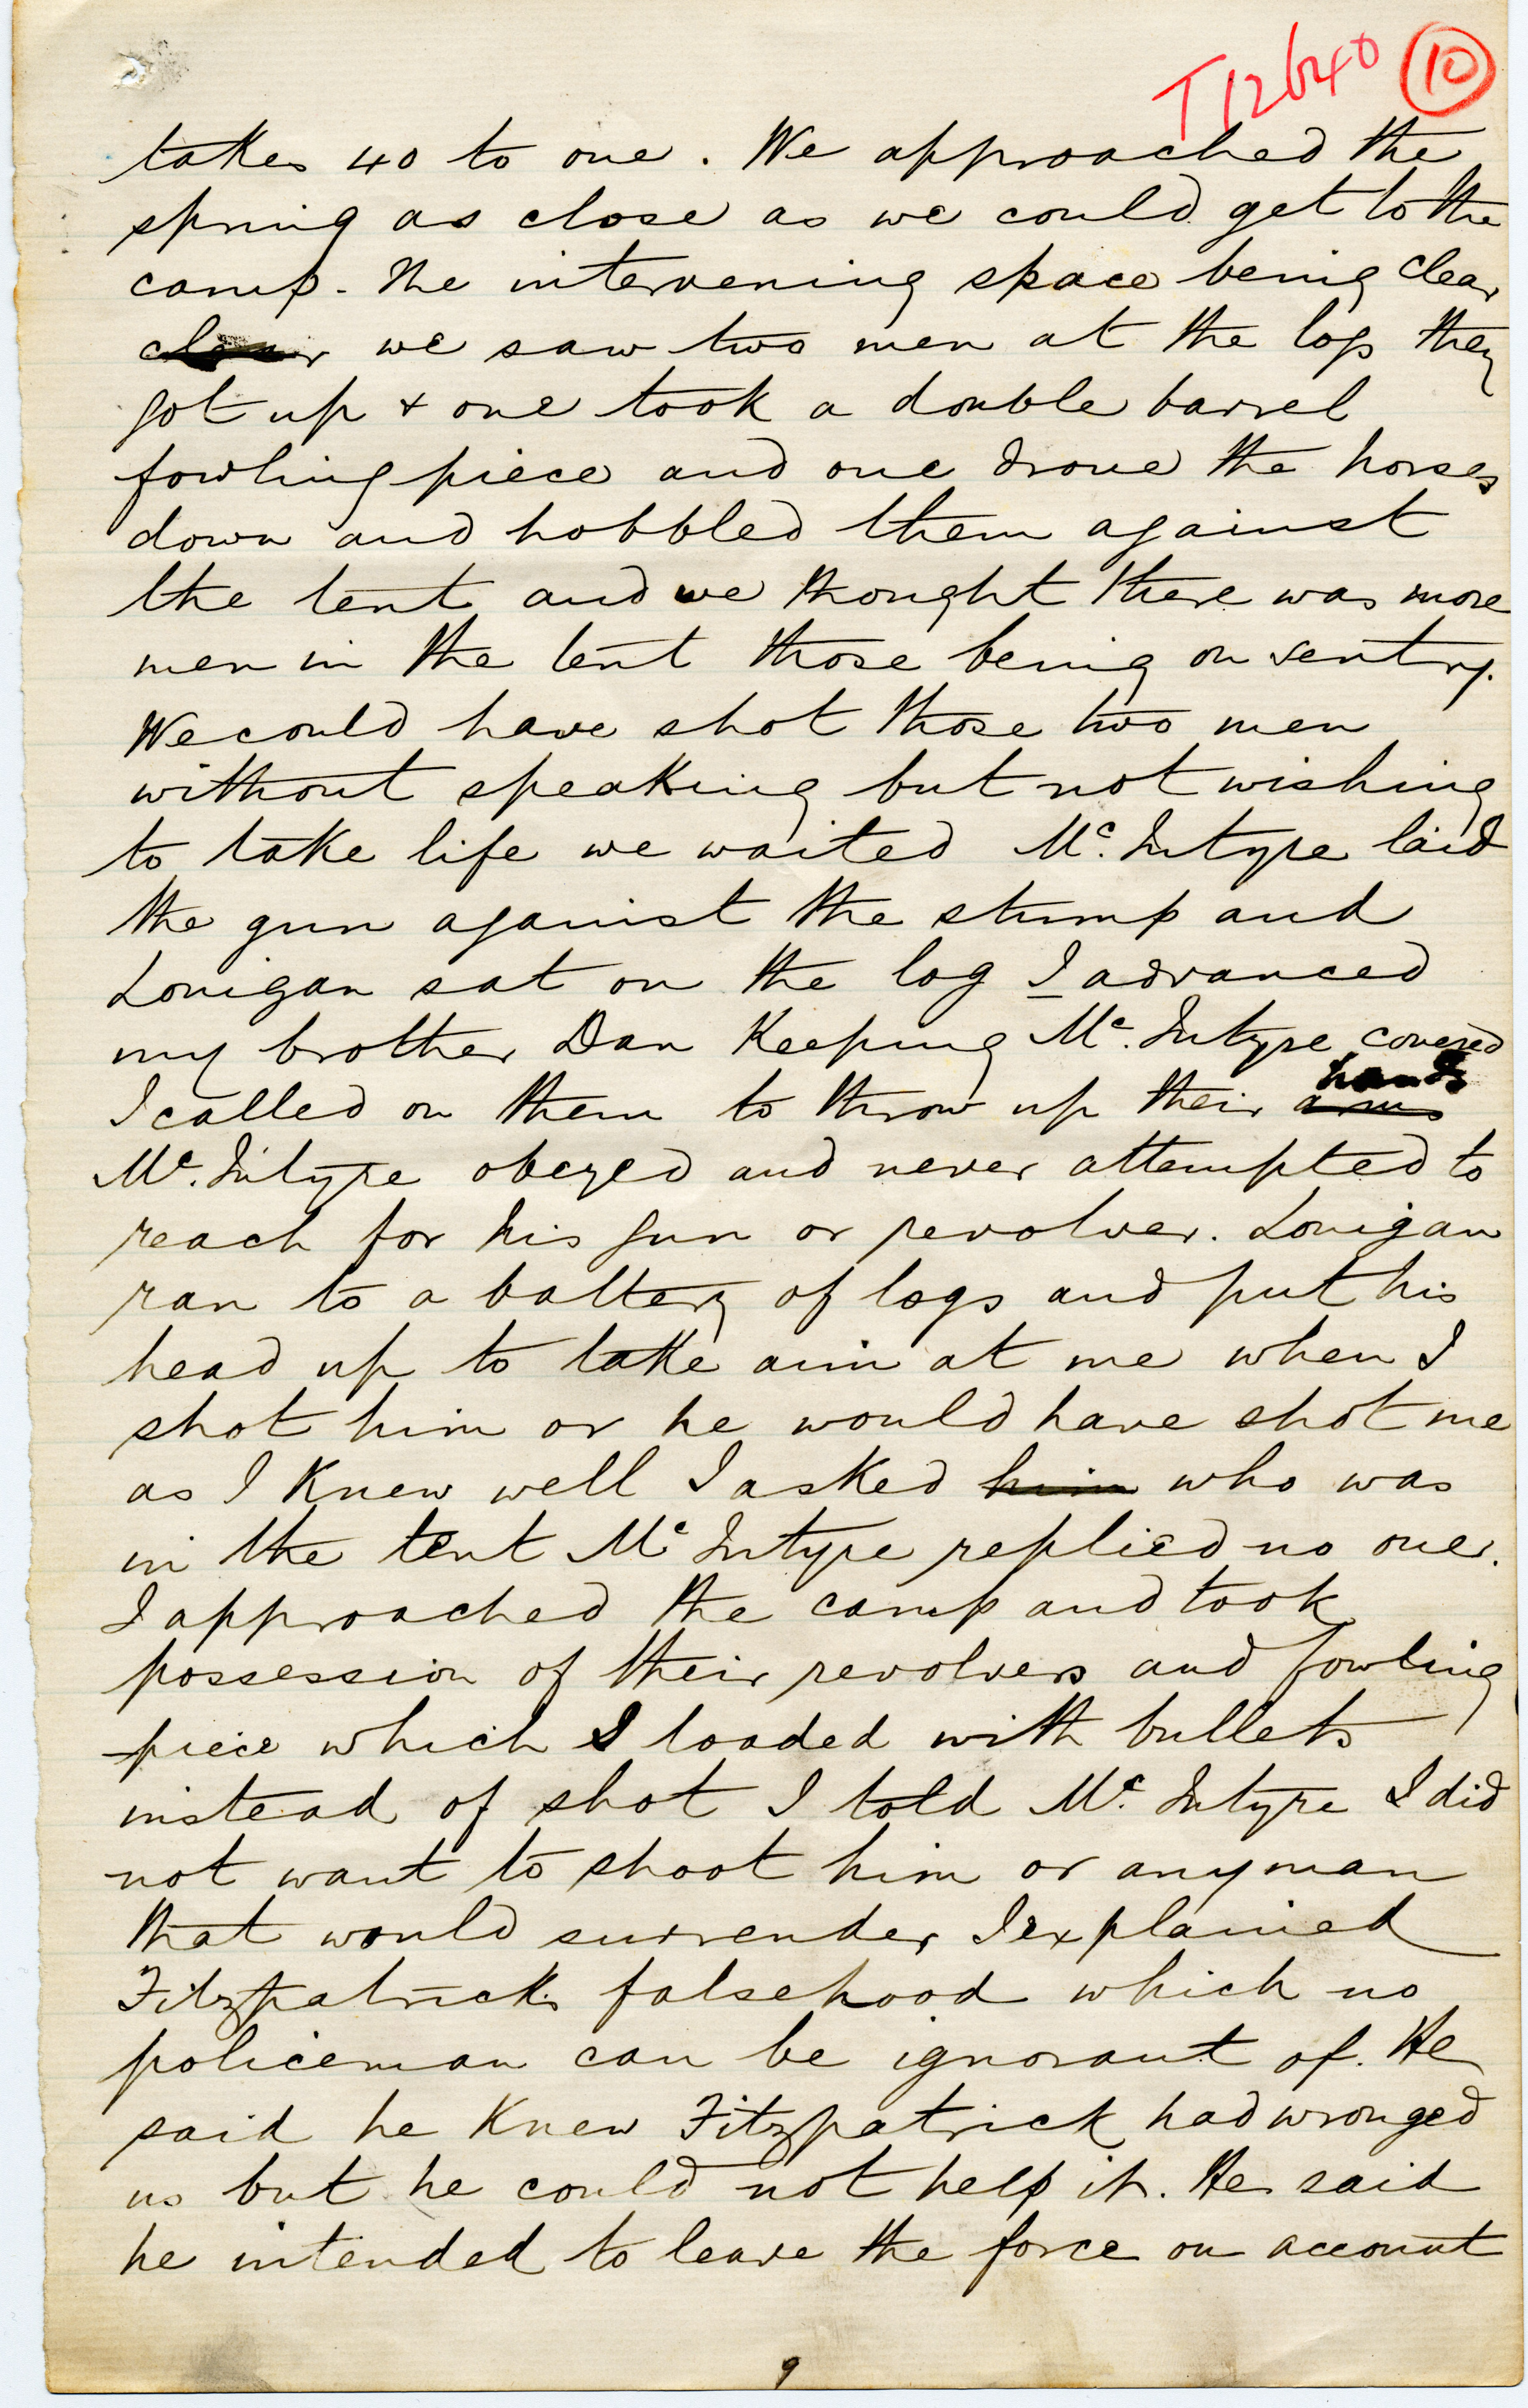 T12640 10
takes 40 to one. We approached the
spring as close as we could get to the
camp. The intervening space being clear
clear we saw two men at the logs they
got up + one took a double barrel
fowlingpiece and one drove the horses
down and hobbled them against
the tent and we thought there was more
men in the tent those being on sentry.
We could have shot those two men
without speaking but not wishing
to take life we waited Mc. Intyre laid
the gun against the stump and
Lonigan sat on the log I advanced
my brother Dan Keeping Mc. Intyre covered
hands
I called on them to throw up their arms
Mc. Intyre obeyed and never attempted to
reach for his gun or revolver. Lonigan
ran to a battery of logs and put his
head up to take aim at me when I
shot him or he would have shot me
as I Knew well I asked him who was
in the tent Mc Intyre replied no one.
I approached the camp and took
possession of their revolvers and fowling
piece which I loaded with bullets
instead of shot I told Mc. Intyre I did
not want to shoot him or anyman
that would surrender, I explained
Fitzpatricks falsehood which no
policeman can be ignorant of. He
said he Knew Fitzpatrick had wronged
us but he could not help it. He said
he intended to leave the force on account
9